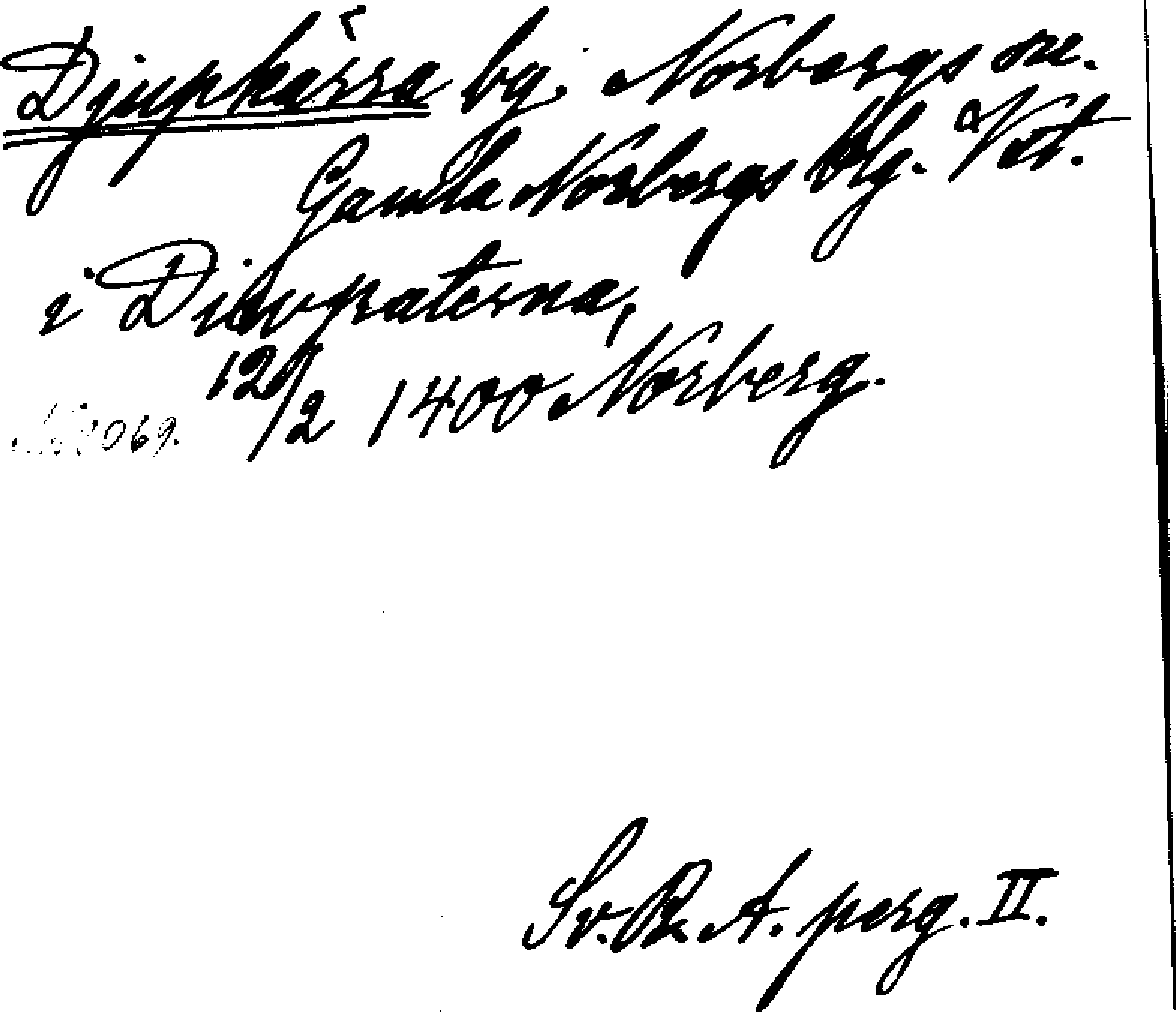 Djupkärra by. Norbergs sn.
Gamla Norbergs blg. Vstt.
i Diwpraterna,
12/2 1400 Norberg.
069.
Sv. R. A. perg. II.